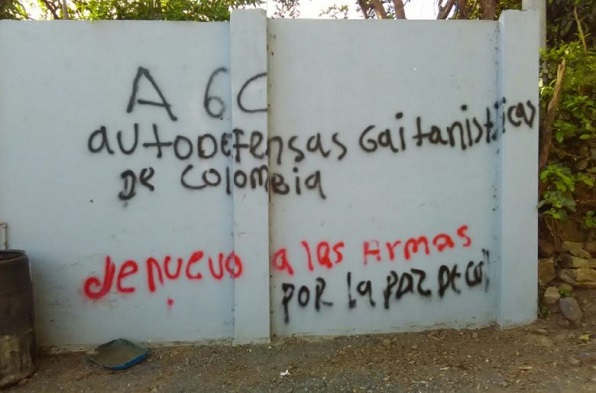 AGC
AUTODEFENSAS GAITANISTAS
DE COLOMBIA
de nuevo a las Armas
POR la PAZ DE Co"